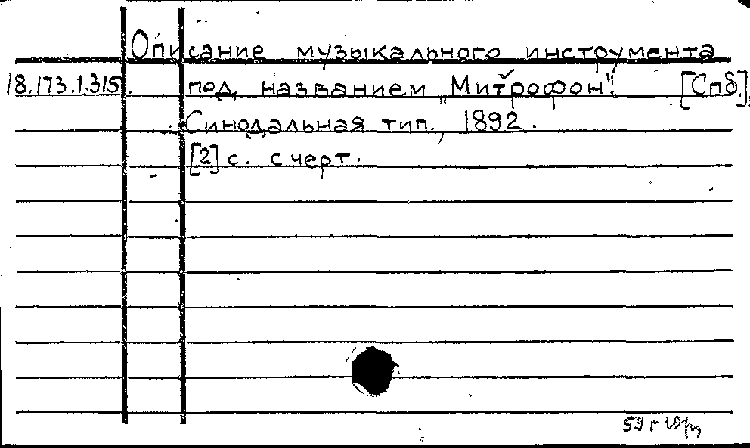 Описание музыкального инструмента
18.173.1.315. под названием „Митрофон". [Спб.],
Синодальная тип., 1892.
[2] с. с черт.
59 г